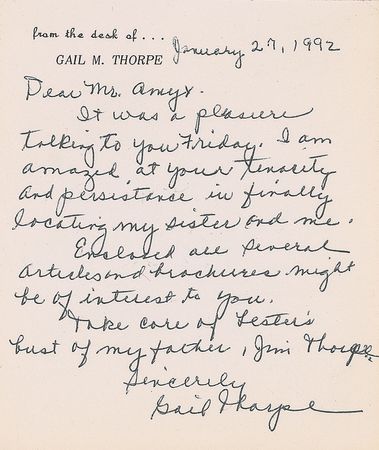 from the desk of . . .
January 27, 1992
GAIL M. THORPE
Dear Mr. Amyx.
It was a pleasure
talking to you Friday. I am
amazed at your tenacity
and persistance in finally
locating my sister and me.
Enclosed are several
articles and brochures might
be of interest to you.
Take care of Lester's
bust of my father, Jim Thorpe.
Sincerely
Gail Thorpe